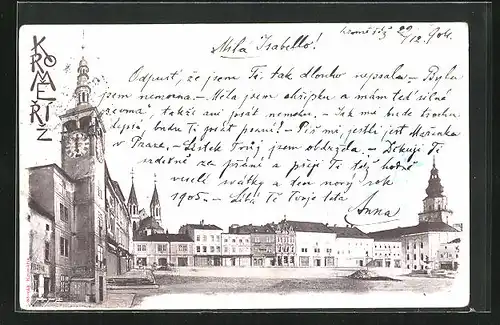 KROMĚŘÍŽ
29/12. 904.
Milá Isabello!
Odpusť, že jsem Ti tak dlouho nepsala. – Byla
jsem nemocna. – Měla jsem chřipku a mám teď silné
takže ani psát nemohu. – Jak mě bude trochu
lépe, budu Ti psát psaní! – Piš mě, jestli jest Mařenka
v Praze. – Lístek Tvůj jsem obdržela. – Děkuji Ti
srdečně za přání a přeji Ti též hodně
veselé svátky a ten nový rok
1905. – Líbá Tě Tvoje teta
Anna